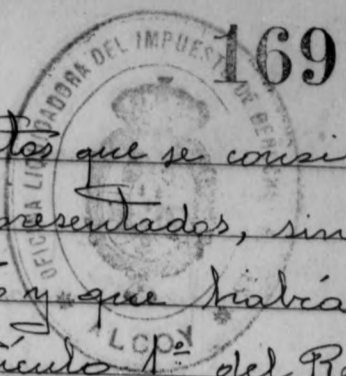 169
OFICINA LIQUIDADORA DEL IMPUESTO DE
tos que se consi
presentados, sin
y que habrá
ículo 1º del Re
ALCOY